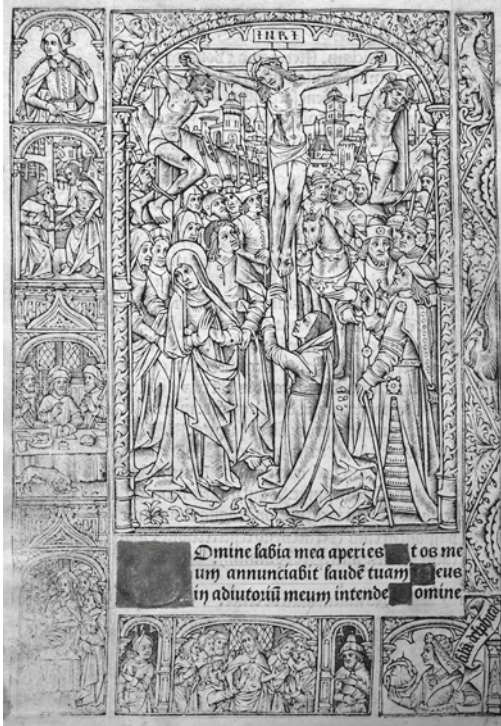 INRI
Omine labia mea aperies t os me
um annunciabit laudē tuam eus
in adiutoriū meum intende omine